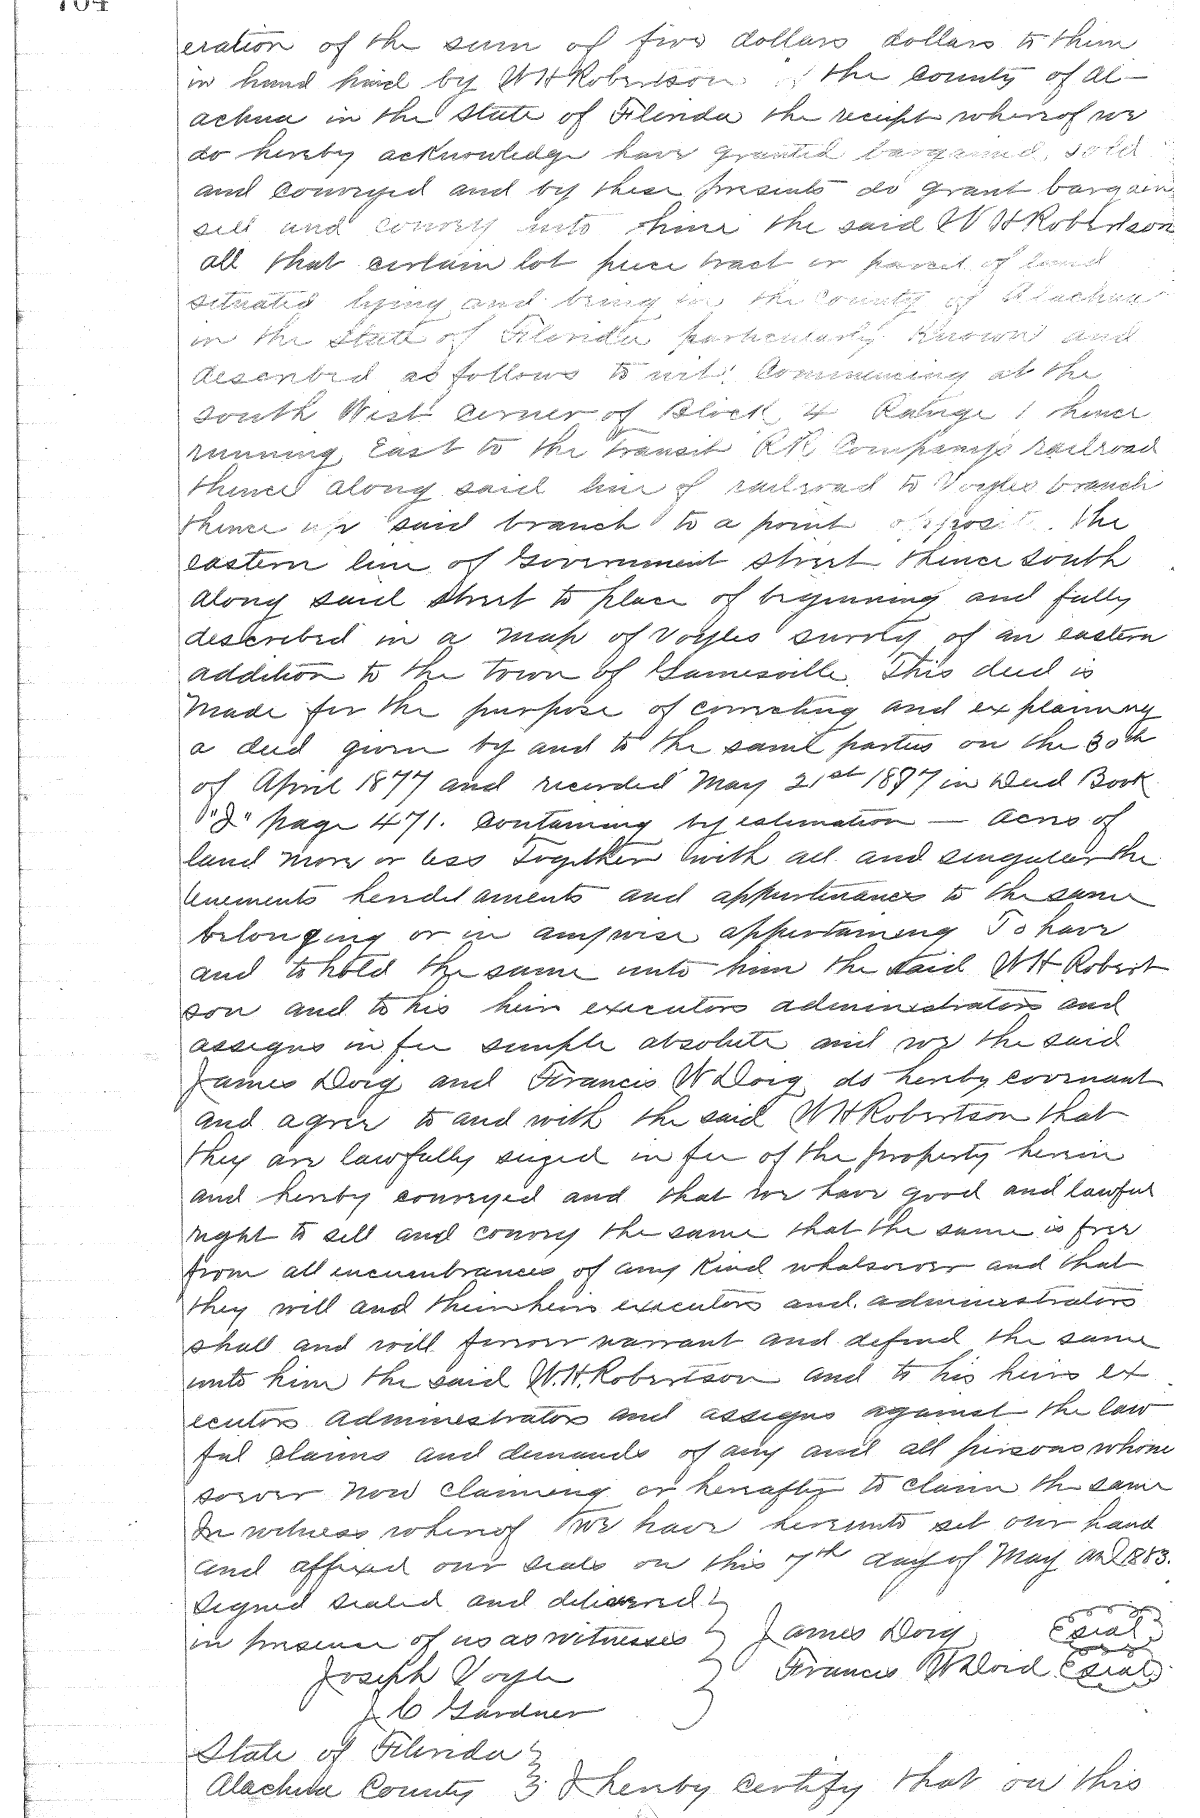 704
eration of the sum of five dollars dollars to them
in hand paid by W H Robertson of the County of Al-
achua in the State of Florida the receipt whereof we
do hereby acknowledge have granted bargained, sold
and conveyed and by these presents do grant bargain
sell and convey unto him the said W H Robertson
all that certain lot piece tract or parcel of land
situated lying and being in the County of Alachua
in the State of Florida particularly known and
described as follows to wit: Commencing at the
South West corner of Block 4 Range 1 hence
running East to the Transit RR Company's railroad
thence along said line of railroad to Voyles branch
thence up said branch to a point opposite the
eastern line of Government street thence south
along said street to place of beginning and fully
described in a map of Voyles survey of an eastern
addition to the town of Gainesville. This deed is
made for the purpose of correcting and explaining
a deed given by and to the same parties on the 30th
of April 1877 and recorded May 21st 1877 in Deed Book
"J" page 471. Containing by estimation — Acres of
land more or less Together with all and singular the
tenements hereditaments and appurtenances to the same
belonging or in anywise appertaining To have
and to hold the same unto him the said W H Robert
son and to his heirs executors administrators and
assigns in fee simple absolute and we the said
James Doig and Francis W Doig do hereby covenant
and agree to and with the said W H Robertson that
they are lawfully seized in fee of the property herein
and hereby conveyed and that we have good and lawful
right to sell and convey the same that the same is free
from all encumbrances of any kind whatsoever and that
they will and their heirs executors and administrators
shall and will forever warrant and defend the same
unto him the said W.H. Robertson and to his heirs ex
ecutors administrators and assigns against the law
ful claims and demands of any and all persons whom
soever now claiming or hereafter to claim the same
In witness whereof we have hereunto set our hand
and affixed our seals on this 7th day of May AD 1883.
Signed sealed and delivered }
in presence of us as witnesses } James Doig (seal)
Joseph Voyle } Francis W Doid (seal)
J C Gardner }
State of Florida }
Alachua County } I hereby certify that on this